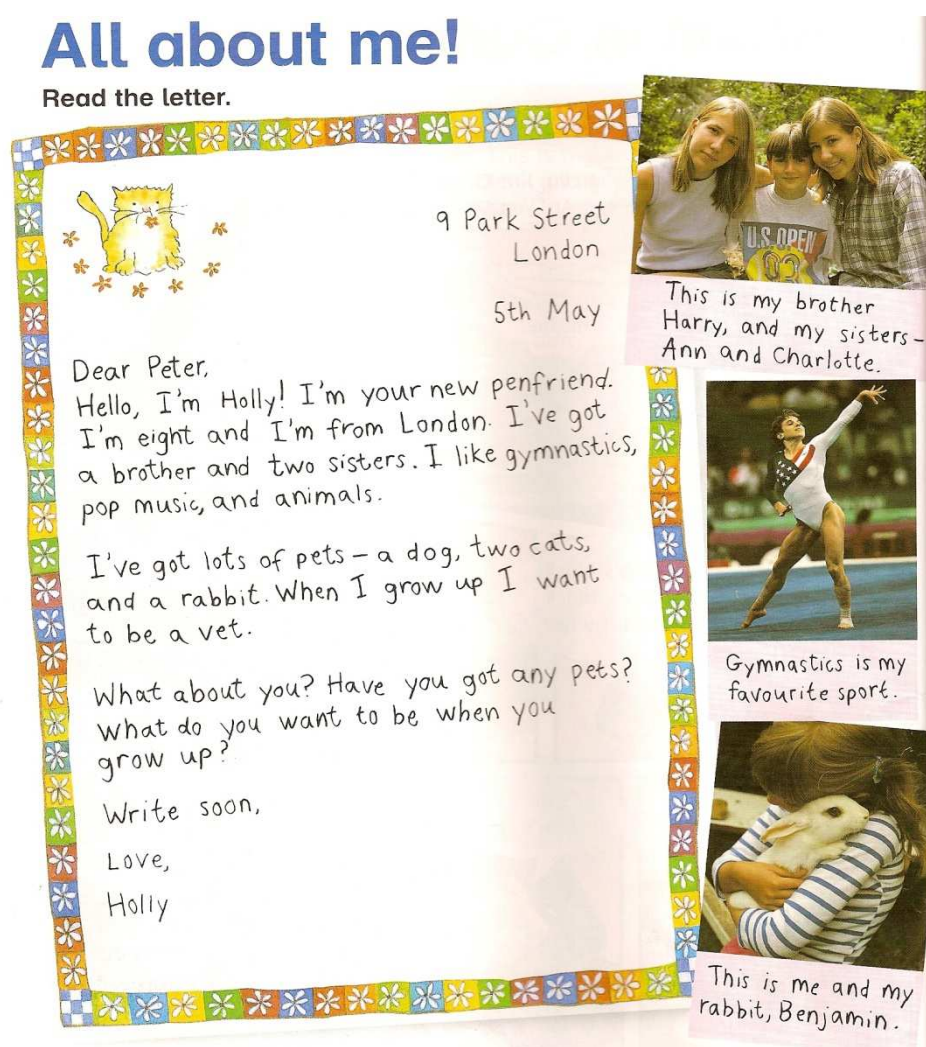 All about me!
Read the letter.
9 Park Street
London
5th May
Dear Peter,
Hello, I'm Holly! I'm your new penfriend.
I'm eight and I'm from London. I've got
a brother and two sisters. I like gymnastics,
pop music, and animals.
I've got lots of pets – a dog, two cats,
and a rabbit. When I grow up I want
to be a vet.
What about you? Have you got any pets?
What do you want to be when you
grow up?
Write soon,
Love,
Holly
U.S. OPEN
93
This is my brother
Harry, and my sisters –
Ann and Charlotte.
Gymnastics is my
favourite sport.
This is me and my
rabbit, Benjamin.